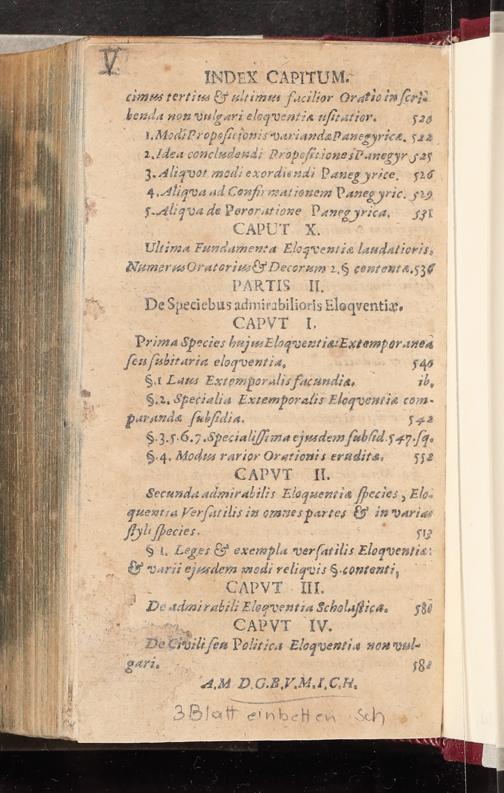 V
INDEX CAPITUM.
cimus tertius & ultimus facilior Oratio in scri-
benda non vulgari eloqventiæ usitatior. 520
1. Modi Propositionis variandæ Panegyricæ. 522
2. Idea concludendi Propositiones Panegyr 525
3. Aliqvot modi exordiendi Panegyrice. 526
4. Aliqva ad Confirmationem Panegyric. 529
5. Aliqva de Peroratione Panegyrica. 531
CAPUT X.
Ultima Fundamenta Eloqventiæ laudatioris,
Numerus Oratorius & Decorum 2. § contenta. 536
PARTIS II.
De Speciebus admirabilioris Eloqventiæ.
CAPVT I.
Prima Species hujus Eloqventiæ: Extemporanea
seu subitaria eloqventia. 540
§. 1 Laus Extemporalis facundiæ. ib.
§. 2. Specialia Extemporalis Eloqventiæ com-
parandæ subsidia. 542
§. 3. 5. 6. 7. Specialissima ejusdem subsid. 547. sq.
§. 4. Modus rarior Orationis eruditæ. 552
CAPVT II.
Secunda admirabilis Eloquentiæ species, Elo-
quentia Versatilis in omnes partes & in varias
styli species. 513
§ 1. Leges & exempla versatilis Eloqventiæ:
& varii ejusdem modi reliqvis §. contenti,
CAPVT III.
De admirabili Eloqventia Scholastica. 580
CAPVT IV.
De Civili seu Politica Eloqventia non vul-
gari. 582
A.M D.G.B.V.M.I.C.H.
3 Blatt einbetten Sch